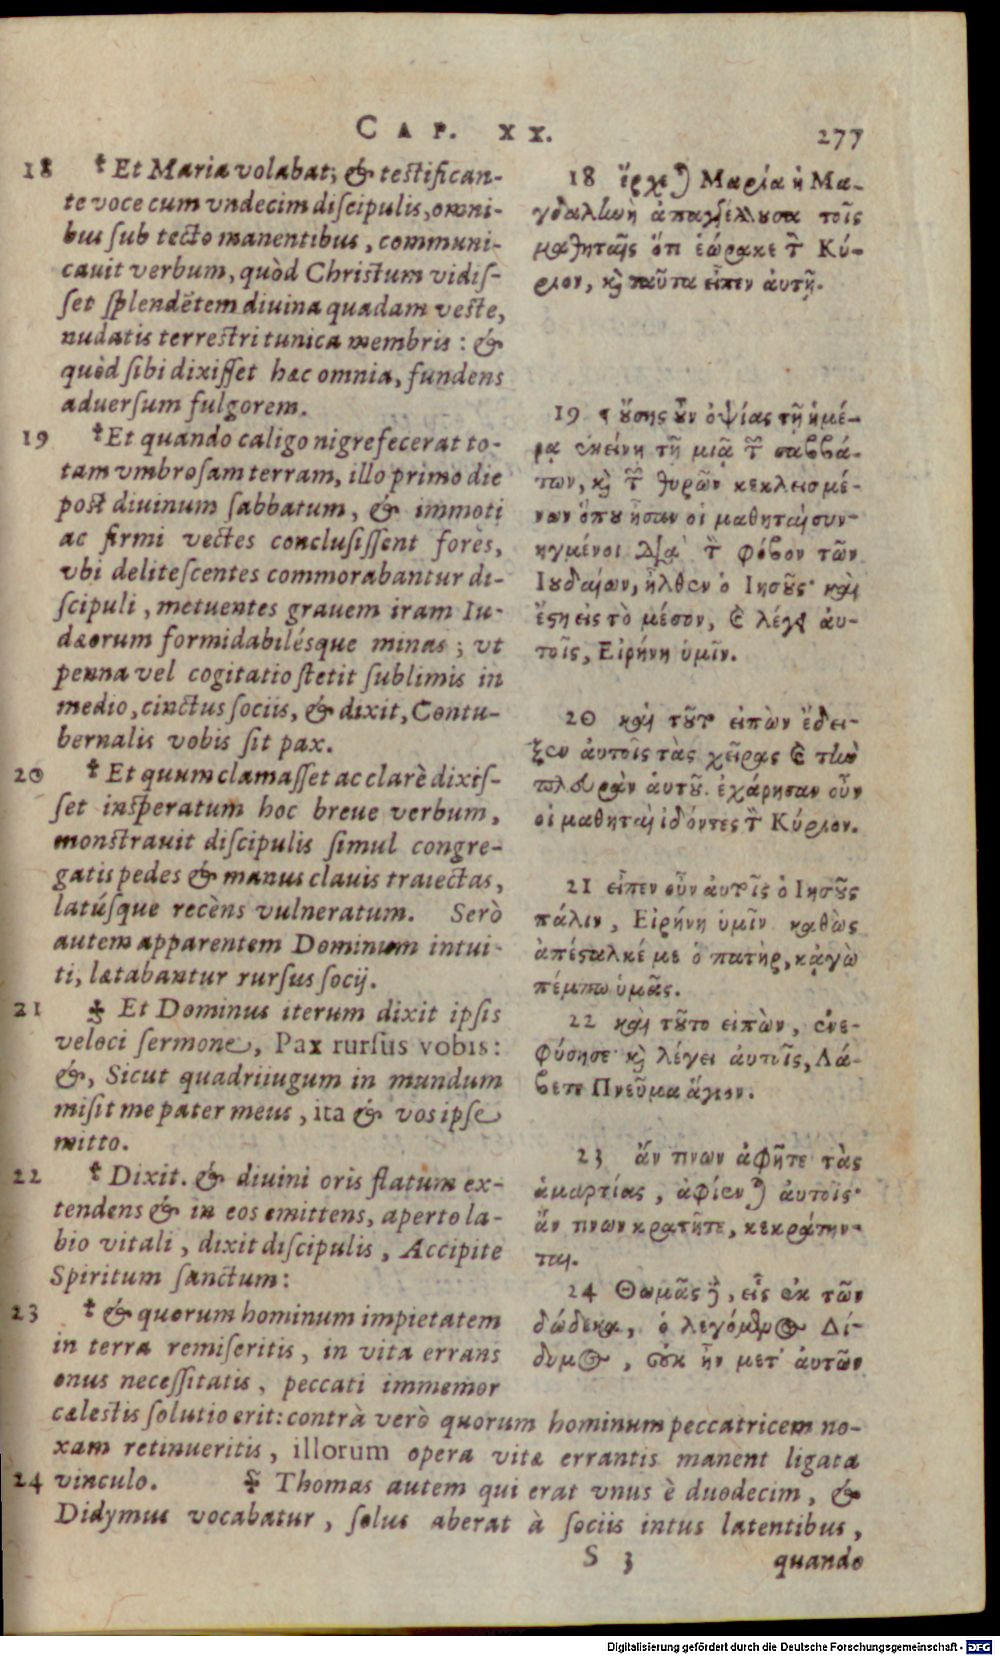 CAP. XX.
277
18 † Et Maria volabat; & testifican-
te voce cum vndecim discipulis, omni-
bus sub tecto manentibus, communi-
cauit verbum, quòd Christum vidis-
set splendētem diuina quadam veste,
nudatis terrestri tunica membris: &
quòd sibi dixisset hæc omnia, fundens
aduersum fulgorem.
19 † Et quando caligo nigrefecerat to-
tam vmbrosam terram, illo primo die
post diuinum sabbatum, & immoti
ac firmi vectes conclusissent fores,
vbi delitescentes commorabantur di-
scipuli, metuentes grauem iram Iu-
dæorum formidabilésque minas; vt
penna vel cogitatio stetit sublimis in
medio, cinctus sociis, & dixit, Contu-
bernalis vobis sit pax.
20 † Et quum clamasset ac clarè dixis-
set insperatum hoc breue verbum,
monstrauit discipulis simul congre-
gatis pedes & manus clauis traiectas,
latúsque recèns vulneratum. Serò
autem apparentem Dominum intui-
ti, lætabantur rursus socij.
21 † Et Dominus iterum dixit ipsis
veloci sermone, Pax rursus vobis:
&, Sicut quadriiugum in mundum
misit me pater meus, ita & vos ipse
mitto.
22 † Dixit. & diuini oris flatum ex-
tendens & in eos emittens, aperto la-
bio vitali, dixit discipulis, Accipite
Spiritum sanctum:
23 † & quorum hominum impietatem
in terra remiseritis, in vita errans
onus necessitatis, peccati immemor
cælestis solutio erit: contrà verò quorum hominum peccatricem no-
xam retinueritis, illorum opera vitæ errantis manent ligata
24 vinculo. † Thomas autem qui erat vnus è duodecim, &
Didymus vocabatur, solus aberat à sociis intus latentibus,
18 ἔρχεται Μαρία ἡ Μα-
γδαλωὴ ἀπαγγέλλουσα τοῖς
μαθηταῖς ὅτι ἑώρακε τὸν Κύ-
ριον, καὶ ταῦτα εἶπεν ἀυτῇ.
19 † οὔσης οὖν ὀψίας τῇ ἡμέ-
ρᾳ ἐκείνῃ τῇ μιᾷ τῶν σαββά-
των, καὶ τῶν θυρῶν κεκλεισμέ-
νων ὅπου ἦσαν οἱ μαθηταὶ συν-
ηγμένοι διὰ τὸν φόβον τῶν
Ιουδαίων, ἦλθεν ὁ Ιησοῦς· καὶ
ἔστη εἰς τὸ μέσον, καὶ λέγει ἀυ-
τοῖς, Εἰρήνη ὑμῖν.
20 καὶ τοῦτο εἰπὼν ἔδει-
ξεν ἀυτοῖς τὰς χεῖρας καὶ τὴν
πλευρὰν ἀυτοῦ. ἐχάρησαν οὖν
οἱ μαθηταὶ ἰδόντες τὸν Κύριον.
21 εἶπεν οὖν ἀυτοῖς ὁ Ιησοῦς
πάλιν, Εἰρήνη ὑμῖν καθὼς
ἀπέσταλκέ με ὁ πατὴρ, κᾀγὼ
πέμπω ὑμᾶς.
22 καὶ τοῦτο εἰπὼν, ἐνε-
φύσησε καὶ λέγει ἀυτοῖς, Λά-
βετε Πνεῦμα ἅγιον.
23 ἄν τινων ἀφῆτε τὰς
ἁμαρτίας, ἀφίενται ἀυτοῖς·
ἄν τινων κρατῆτε, κεκράτην-
ται.
24 Θωμᾶς δὲ, εἷς ἐκ τῶν
δώδεκα, ὁ λεγόμενος Δί-
δυμος, οὐκ ἦν μετ' ἀυτῶν
S 3
quando
Digitalisierung gefördert durch die Deutsche Forschungsgemeinschaft - DFG